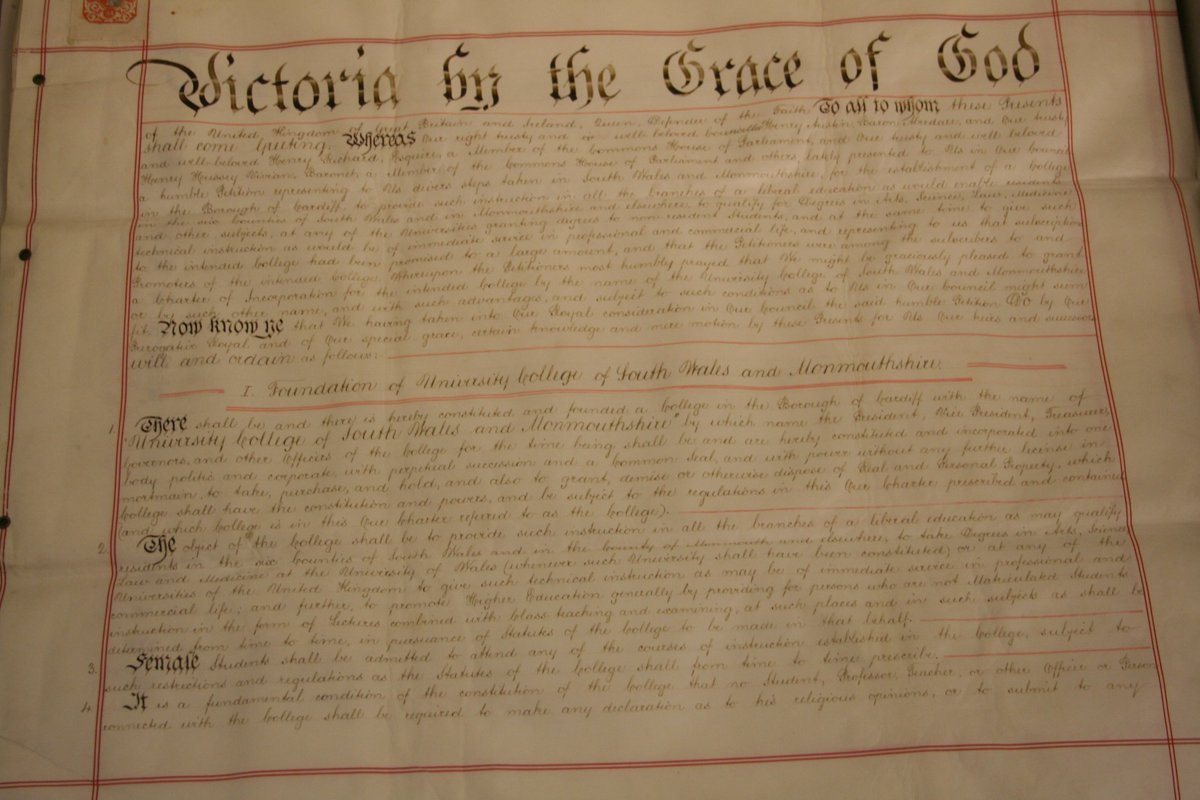 Victoria by the Grace of God
of the United Kingdom of Great Britain and Ireland, Queen, Defender of the Faith To all to whom these Presents
shall come Greeting. Whereas Our right trusty and well beloved Councillor Henry Austin Baron Aberdare, and Our trusty
and well-beloved Henry Richard, Esquire, a Member of the Commons House of Parliament, and Our trusty and well beloved
Henry Hussey Vivian, Baronet, a Member of the Commons House of Parliament and others, lately presented to Us in Our Council
a humble Petition representing to Us divers steps taken in South Wales and Monmouthshire for the establishment of a College
in the Borough of Cardiff, to provide such instruction in all the branches of a liberal education as would enable residents
in the six Counties of South Wales and in Monmouthshire and elsewhere, to qualify for Degrees in Arts, Science, Law, Medicine
and other subjects, at any of the Universities granting degrees to non-resident Students, and at the same time to give such
technical instruction as would be of immediate service in professional and commercial life, and representing to us that subscriptions
to the intended College had been promised to a large amount, and that the Petitioners were among the subscribers to and
Promoters of the intended College. Whereupon the Petitioners most humbly prayed that We might be graciously pleased to grant
a Charter of Incorporation for the intended College by the name of the University College of South Wales and Monmouthshire
or by such other name, and with such advantages, and subject to such conditions as to Us in Our Council might seem
fit. Now know ye that We having taken into Our Royal consideration in Our Council the said humble Petition Do by Our
Prerogative Royal, and of Our special grace, certain knowledge and mere motion by these Presents for Us Our heirs and successors
will and ordain as follows:
I. Foundation of University College of South Wales and Monmouthshire.
1. There shall be and there is hereby constituted and founded a College in the Borough of Cardiff with the name of
"University College of South Wales and Monmouthshire" by which name the President, Vice President, Treasurer,
Governors, and other Officers of the College for the time being shall be and are hereby constituted and incorporated into one
body politic and corporate with perpetual succession and a Common Seal, and with power without any further license in
mortmain, to take, purchase, and hold, and also to grant, demise or otherwise dispose of Real and Personal Property, which
College shall have the constitution and powers, and be subject to the regulations in this Our Charter prescribed and contained
(and which College is in this Our Charter referred to as the College).
2. The object of the College shall be to provide such instruction in all the branches of a liberal education as may qualify
residents in the six Counties of South Wales and in the County of Monmouth and elsewhere, to take Degrees in Arts, Science
Law and Medicine at the University of Wales (whenever such University shall have been constituted) or at any of the
Universities of the United Kingdom to give such technical instruction as may be of immediate service in professional and
commercial life; and further, to promote Higher Education generally by providing for persons who are not Matriculated Students
instruction in the form of Lectures combined with Class teaching and examining, at such places and in such subjects as shall be
determined from time to time, in pursuance of Statutes of the College to be made in that behalf.
3. Female Students shall be admitted to attend any of the courses of instruction established in the College, subject to
such restrictions and regulations as the Statutes of the College shall from time to time prescribe.
4. It is a fundamental condition of the constitution of the College that no Student, Professor, Teacher, or other Officer or Person
connected with the College shall be required to make any declaration as to his religious opinions, or to submit to any